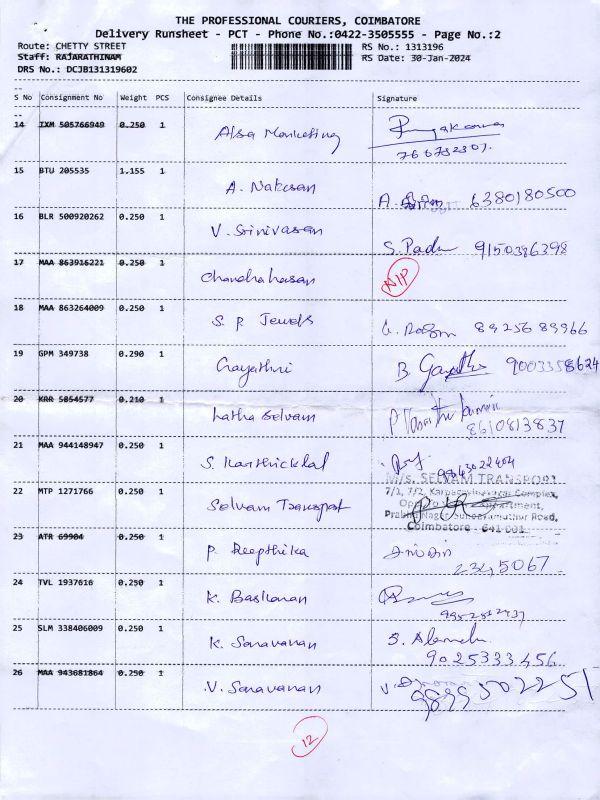 THE PROFESSIONAL COURIERS, COIMBATORE
Delivery Runsheet - PCT - Phone No.:0422-3505555 - Page No.:2
Route: CHETTY STREET RS No.: 1313196
Staff: RAJARATHINAM RS Date: 30-Jan-2024
DRS No.: DCJB131319602
--
S No Consignment No Weight PCS Consignee Details Signature
--
14 IXM 505766949 0.250 1 Alsa Marketing
15 BTU 205535 1.155 1 A. Natesan
A. 6380180500
16 BLR 500920262 0.250 1 V. Srinivasan
S. Padu 9150386398
17 MAA 863916221 0.250 1 Chandrahasan N/P
18 MAA 863264009 0.250 1 S. P. Jewels
G. 89256 89966
19 GPM 349738 0.290 1 Gayathri
B. Gayathri 9003358624
20 KRR 5054577 0.210 1 Latha Selvam
8610813837
21 MAA 944148947 0.250 1 S. Karthicklal
9843022404
M/s. SELVAM TRANSPORT
22 MTP 1271766 0.250 1 Selvam Transport
Coimbatore - 641 001
23 ATR 69904 0.250 1 P. Deepthika
2345067
24 TVL 1937616 0.250 1 K. Baskaran
25 SLM 338406009 0.250 1 K. Saravanan
9025333456
26 MAA 943681864 0.250 1 V. Saravanan
12